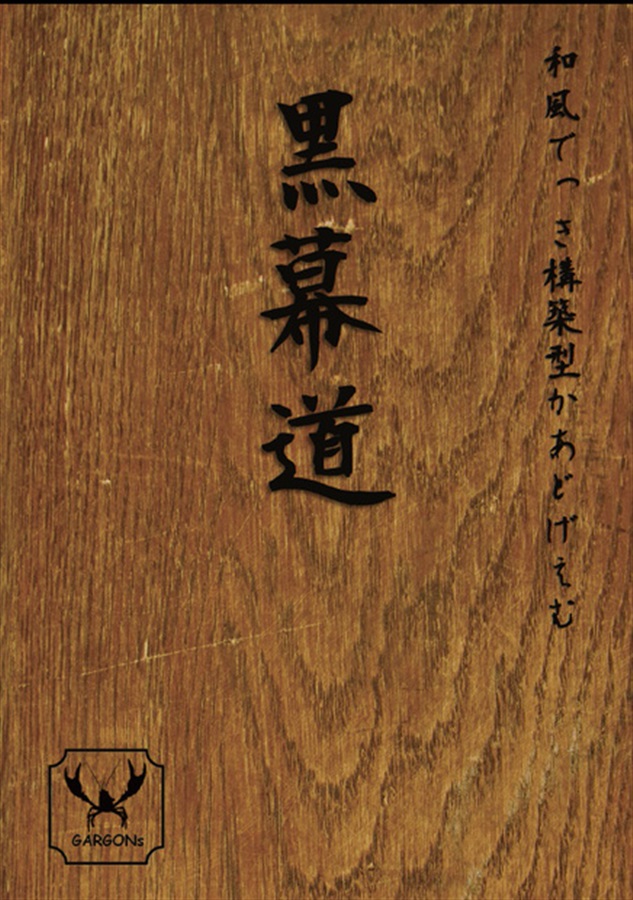 和風でっき構築型かあどげえむ
黒幕道
GARGONs